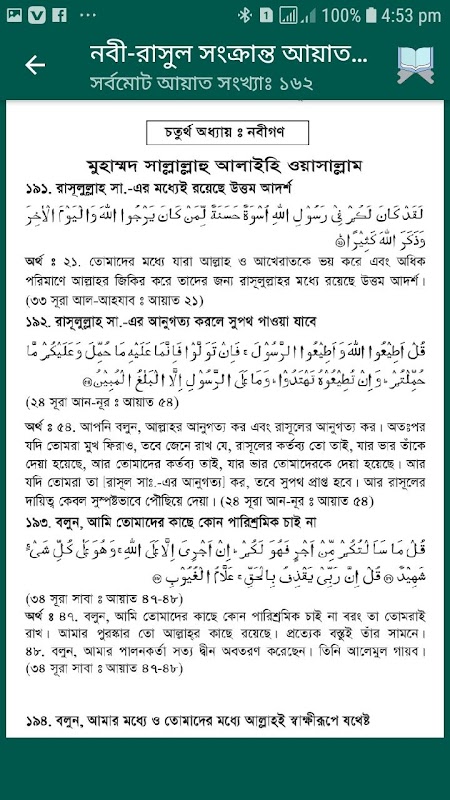 100% 4:53 pm
নবী-রাসুল সংক্রান্ত আয়াত...
সর্বমোট আয়াত সংখ্যাঃ ১৬২
চতুর্থ অধ্যায় ঃ নবীগণ
মুহাম্মদ সাল্লাল্লাহু আলাইহি ওয়াসাল্লাম
১৯১. রাসূলুল্লাহ সা.-এর মধ্যেই রয়েছে উত্তম আদর্শ
لَقَدْ كَانَ لَكُمْ فِيْ رَسُوْلِ اللّٰهِ اُسْوَةٌ حَسَنَةٌ لِّمَنْ كَانَ يَرْجُوا اللّٰهَ وَالْيَوْمَ الْاٰخِرَ
وَذَكَرَ اللّٰهَ كَثِيْرًا ﴿۲۱﴾
অর্থ ঃ ২১. তোমাদের মধ্যে যারা আল্লাহ ও আখেরাতকে ভয় করে এবং অধিক
পরিমাণে আল্লাহর জিকির করে তাদের জন্য রাসূলুল্লাহর মধ্যে রয়েছে উত্তম আদর্শ।
(৩৩ সূরা আল-আহযাব ঃ আয়াত ২১)
১৯২. রাসূলুল্লাহ সা.-এর আনুগত্য করলে সুপথ পাওয়া যাবে
قُلْ اَطِيْعُوا اللّٰهَ وَاَطِيْعُوا الرَّسُوْلَ ۚ فَاِنْ تَوَلَّوْا فَاِنَّمَا عَلَيْهِ مَا حُمِّلَ وَعَلَيْكُمْ مَّا
حُمِّلْتُمْ ۖ وَاِنْ تُطِيْعُوْهُ تَهْتَدُوْا ۚ وَمَا عَلَى الرَّسُوْلِ اِلَّا الْبَلٰغُ الْمُبِيْنُ ﴿۵۴﴾
(২৪ সূরা আন-নূর ঃ আয়াত ৫৪)
অর্থ ঃ ৫৪. আপনি বলুন, আল্লাহর আনুগত্য কর এবং রাসূলের আনুগত্য কর। অতঃপর
যদি তোমরা মুখ ফিরাও, তবে জেনে রাখ যে, রাসূলের কর্তব্য তো তাই, যার ভার তাঁকে
দেয়া হয়েছে, আর তোমাদের কর্তব্য তাই, যার ভার তোমাদেরকে দেয়া হয়েছে। আর
যদি তোমরা তা [রাসূল সাঃ.-এর আনুগত্য] কর, তবে সুপথ প্রাপ্ত হবে। আর রাসূলের
দায়িত্ব কেবল সুস্পষ্টভাবে পৌছিয়ে দেয়া। (২৪ সূরা আন-নূর ঃ আয়াত ৫৪)
১৯৩. বলুন, আমি তোমাদের কাছে কোন পারিশ্রমিক চাই না
قُلْ مَا سَاَلْتُكُمْ مِّنْ اَجْرٍ فَهُوَ لَكُمْ ۖ اِنْ اَجْرِيَ اِلَّا عَلَى اللّٰهِ ۖ وَهُوَ عَلٰى كُلِّ شَيْءٍ
شَهِيْدٌ ﴿۴۷﴾ قُلْ اِنَّ رَبِّيْ يَقْذِفُ بِالْحَقِّ ۚ عَلَّامُ الْغُيُوْبِ ﴿۴۸﴾
(৩৪ সূরা সাবা ঃ আয়াত ৪৭-৪৮)
অর্থ ঃ ৪৭. বলুন, আমি তোমাদের কাছে কোন পারিশ্রমিক চাই না বরং তা তোমরাই
রাখ। আমার পুরস্কার তো আল্লাহর কাছে রয়েছে। প্রত্যেক বস্তুই তাঁর সামনে।
৪৮. বলুন, আমার পালনকর্তা সত্য দ্বীন অবতরণ করেছেন। তিনি আলেমুল গায়ব।
(৩৪ সূরা সাবা ঃ আয়াত ৪৭-৪৮)
১৯৪. বলুন, আমার মধ্যে ও তোমাদের মধ্যে আল্লাহই স্বাক্ষীরূপে যথেষ্ট